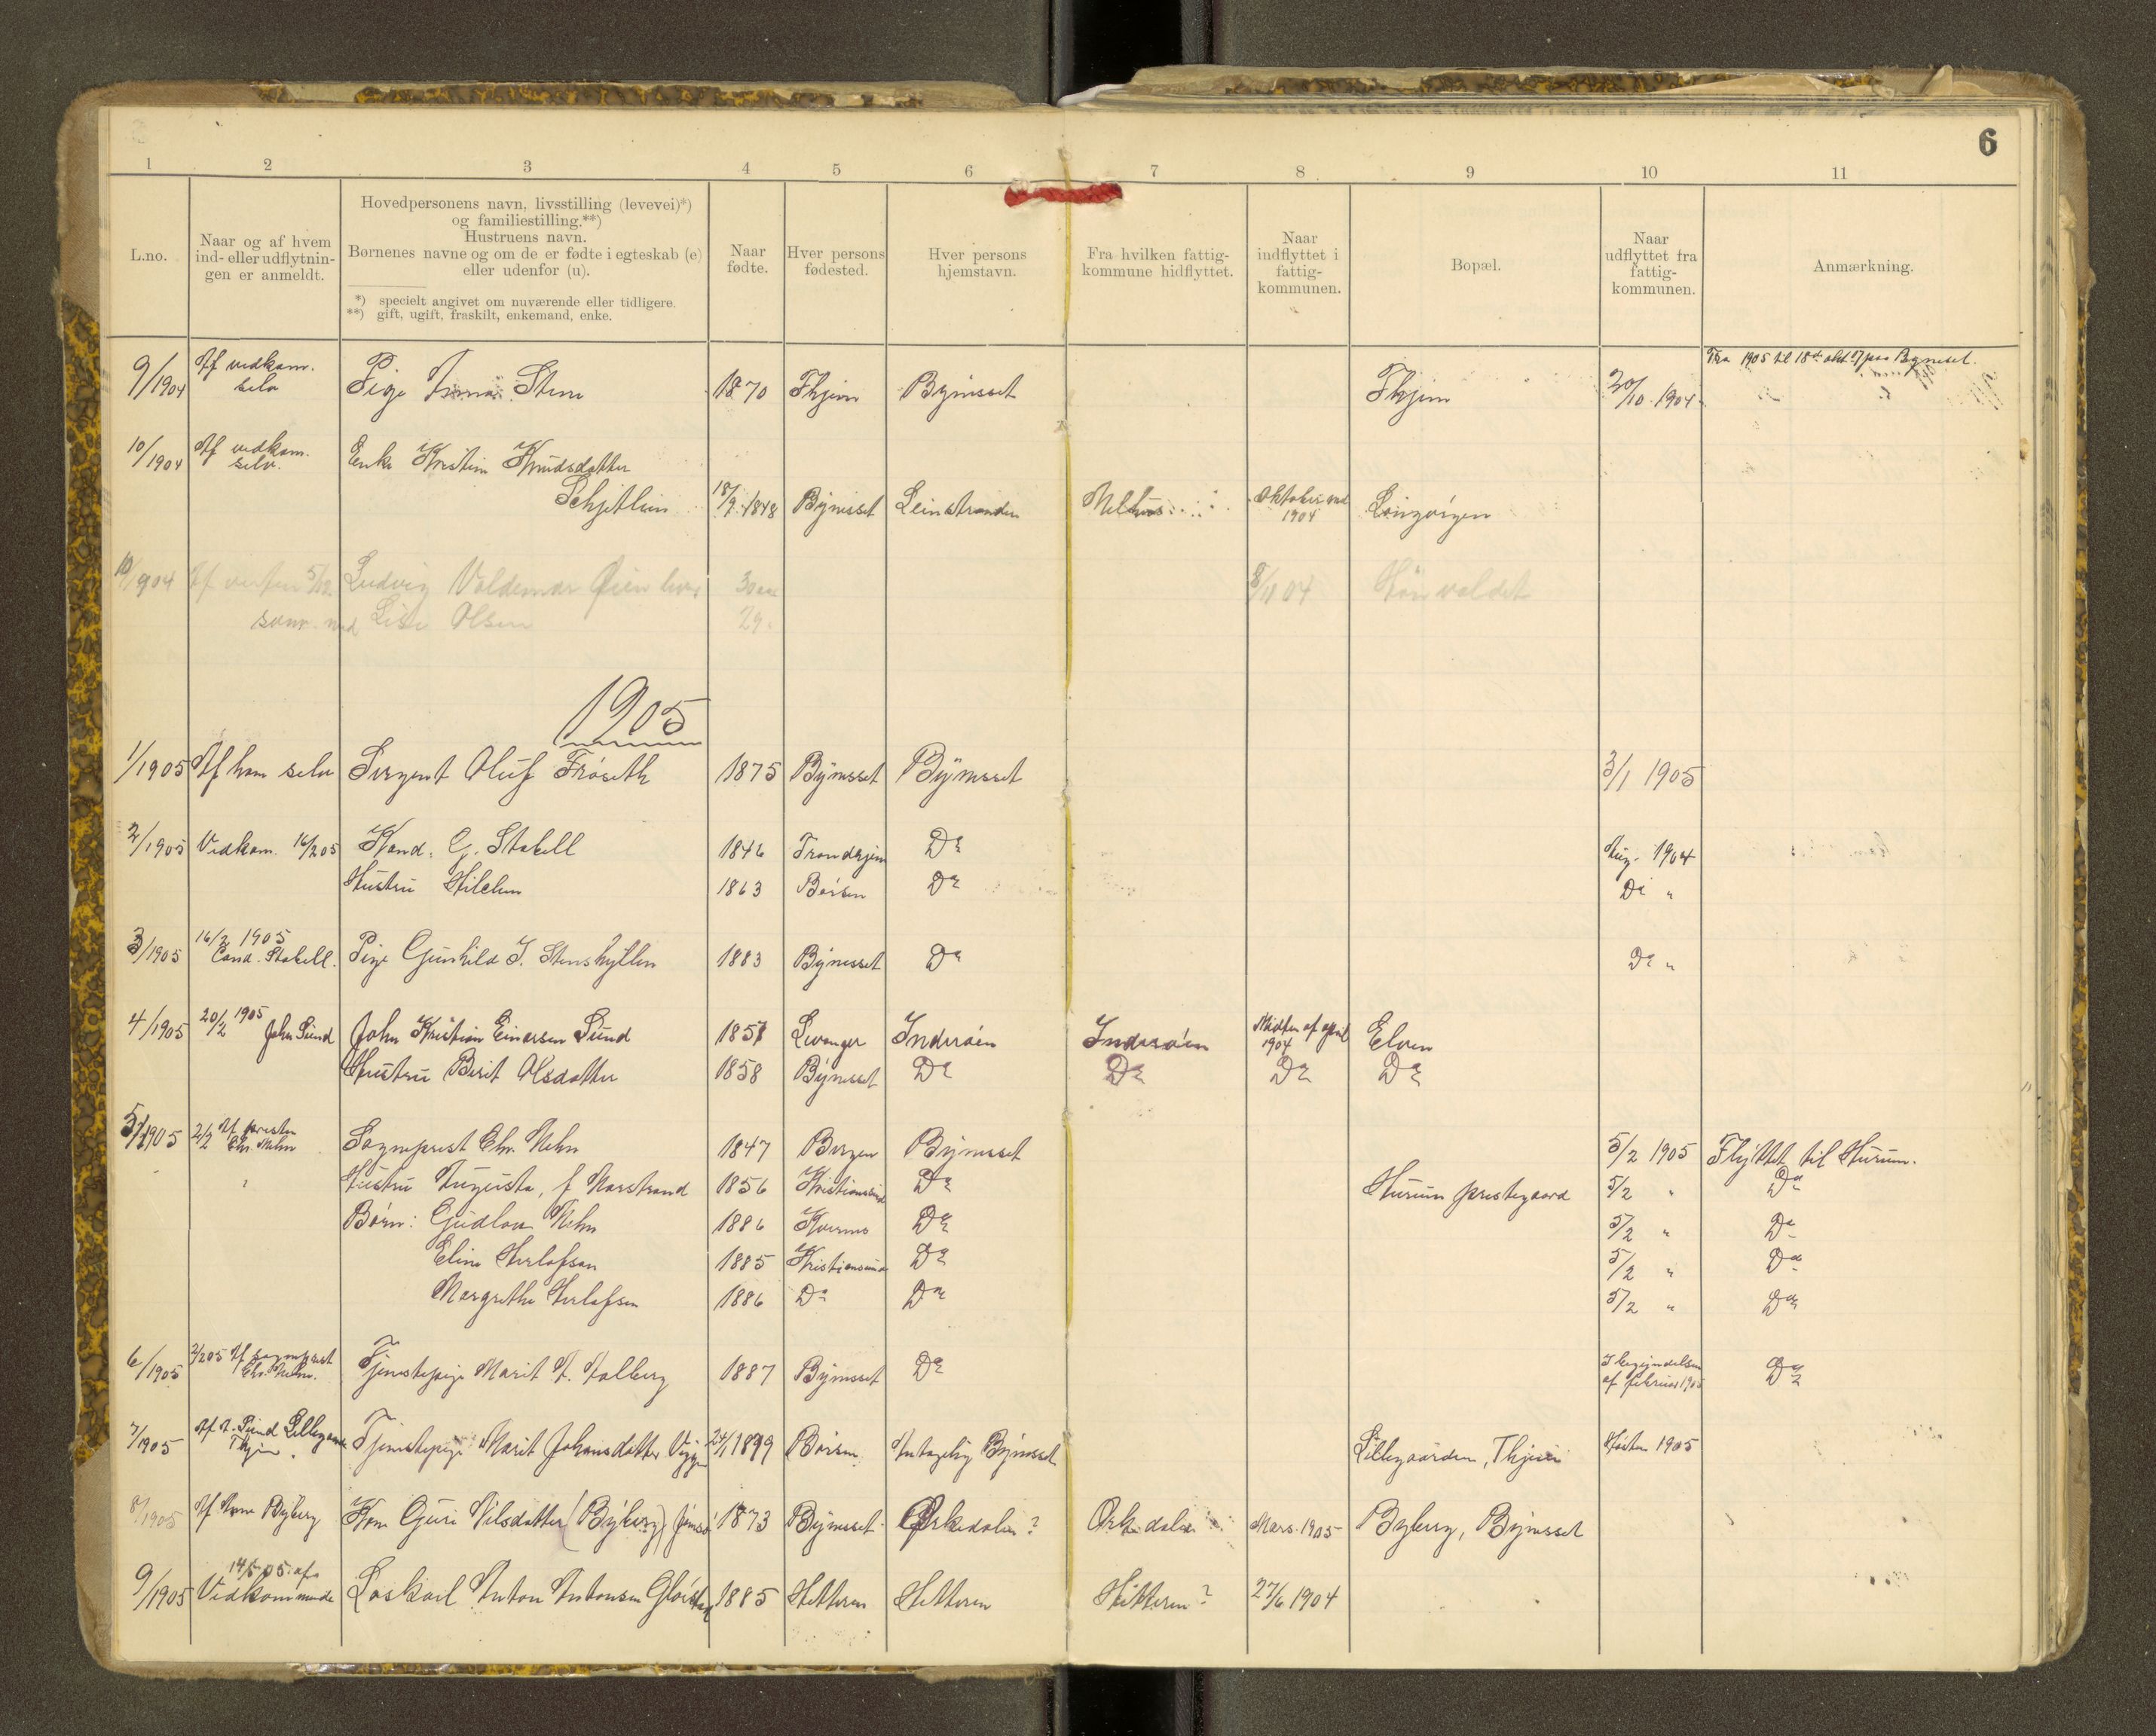 6
1 2 3 4 5 6 7 8 9 10 11
L.no.
Naar og af hvem
ind- eller udflytnin-
gen er anmeldt.
Hovedpersonens navn, livsstilling (levevei)*)
og familiestilling.**)
Hustruens navn.
Børnenes navne og om de er fødte i egteskab (e)
eller udenfor (u).
*) specielt angivet om nuværende eller tidligere.
**) gift, ugift, fraskilt, enkemand, enke.
Naar
fødte.
Hver persons
fødested.
Hver persons
hjemstavn.
Fra hvilken fattig-
kommune hidflyttet.
Naar
indflyttet i
fattig-
kommunen.
Bopæl.
Naar
udflyttet fra
fattig-
kommunen.
Anmærkning.
Fra 1905 til 18de okt. 07 paa Bynesset.
9/1904 Af vedkom. selv Pige Anna Steen 1870 Thjem Bynesset Thjem 20/10 1904
10/1904 Af vedkom. selv. Enke Kristin Knudsdatter
Schjetlein 18/9 1848 Bynesset Leinstranden Melhus Oktober 1904
10/904 Af 5/12. Ludvig Valdemar Øien 30 aar 8/11 04
sam. med Lise Olsen 29
1905
1/1905 Af ham selv Sergent Oluf Frøseth 1875 Bynesset Bynesset 3/1 1905
2/1905 Vedkom. 16/2 05 Kand. G. Stabell 1846 Trondhjem Do Aug. 1904
Hustru 1863 Børsen Do Do "
3/1905 16/2 1905 Cand. Stabell. Pige Gunhild J. Stenshyllen 1883 Bynesset Do Do "
4/1905 20/2 1905 John Sund John Kristian Einarsen Sund 1857 Levanger Inderøen Inderøen Midten af april 1904 Elven
Hustru Berit Olsdatter 1858 Bynesset Do Do Do Do
5/1905 2/2 Af presten Chr. Nehm Sogneprest Chr. Nehm 1847 Bergen Bynesset 5/2 1905 Flyttet til Hurum.
Hustru Augusta, f Marstrand 1856 Kristiansund Do Hurum prestegaard 5/2 " Do
Børn: Gudlov Nehm 1886 Do 5/2 " Do
Elina Herlofsen 1885 Kristiansund Do 5/2 " Do
Margrethe Herlofsen 1886 Do Do 5/2 " Do
6/1905 2/2 05 Af sogneprest Chr. Nehm. Tjenestepige Marit A. Halberg 1887 Bynesset Do I begyndelsen af februar 1905 Do
7/1905 Af A. Sund Lillegaarden Thjem. Tjenestepige Marit Johansdatter Viggen 24/1 1899 Børsen Antagelig Bynesset Lillegaarden, Thjem Høsten 1905
8/1905 Af Byberg Kone Guri Nilsdatter (Byberg) 1873 Bynesset Orkedalen? Orkedalen Mars. 1905 Byberg, Bynesset
9/1905 14/5 05 af Vedkommende Løskarl Anton Antonsen 1885 Hitteren Hitteren Hitteren? 27/6 1904